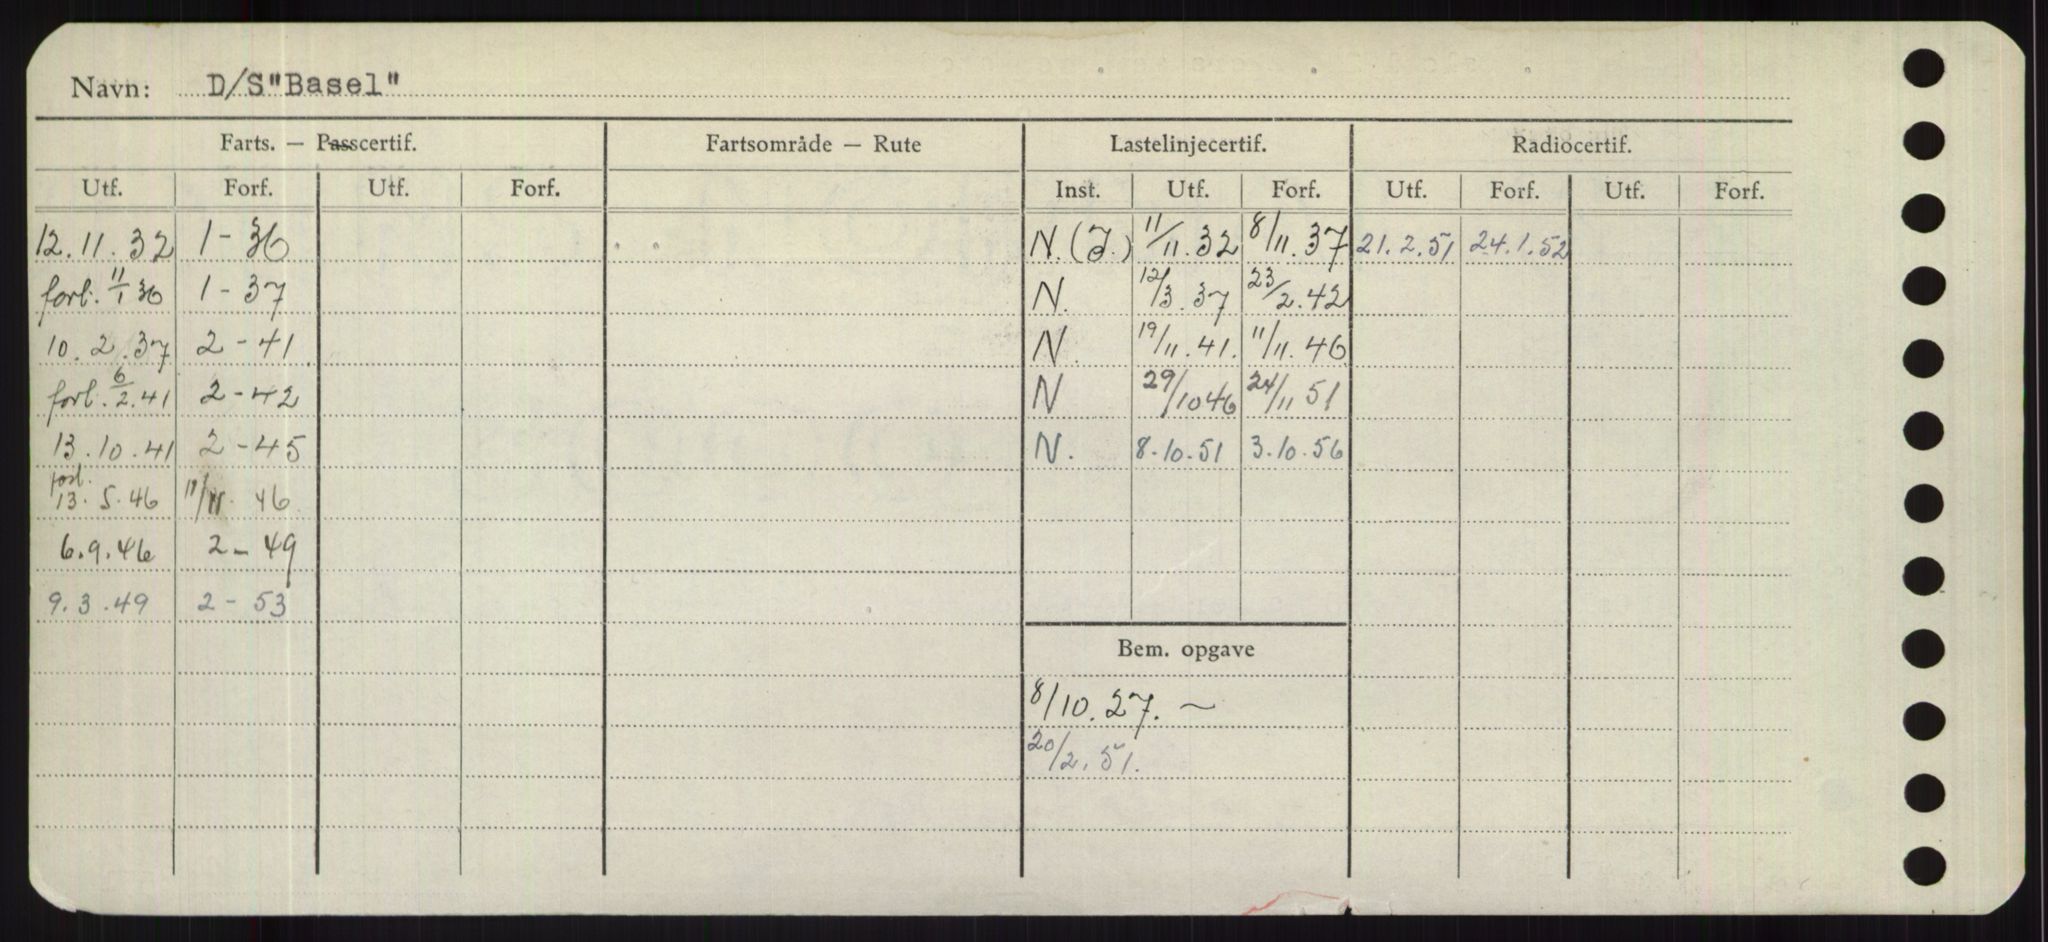 Navn: D/S "Basel"
Farts. — Passcertif. Fartsområde — Rute Lastelinjecertif. Radiocertif.
Utf. Forf. Utf. Forf. Inst. Utf. Forf. Utf. Forf. Utf. Forf.
12.11.32 1-36 N.(I.) 11/11.32 8/11.37 21.2.51 24.1.52
forl. 11/1 36 1-37 N. 12/3.37 23/2.42
10.2.37 2-41 N. 19/11.41. 11/11.46
forl. 6/2.41 2-42 N 29/10 46 24/11 51
13.10.41 2-45 N. 8.10.51 3.10.56
forl.
13.5.46 11/11.46
6.9.46 2-49
9.3.49 2-53
Bem. opgave
8/10.27. ~
20/2.51.